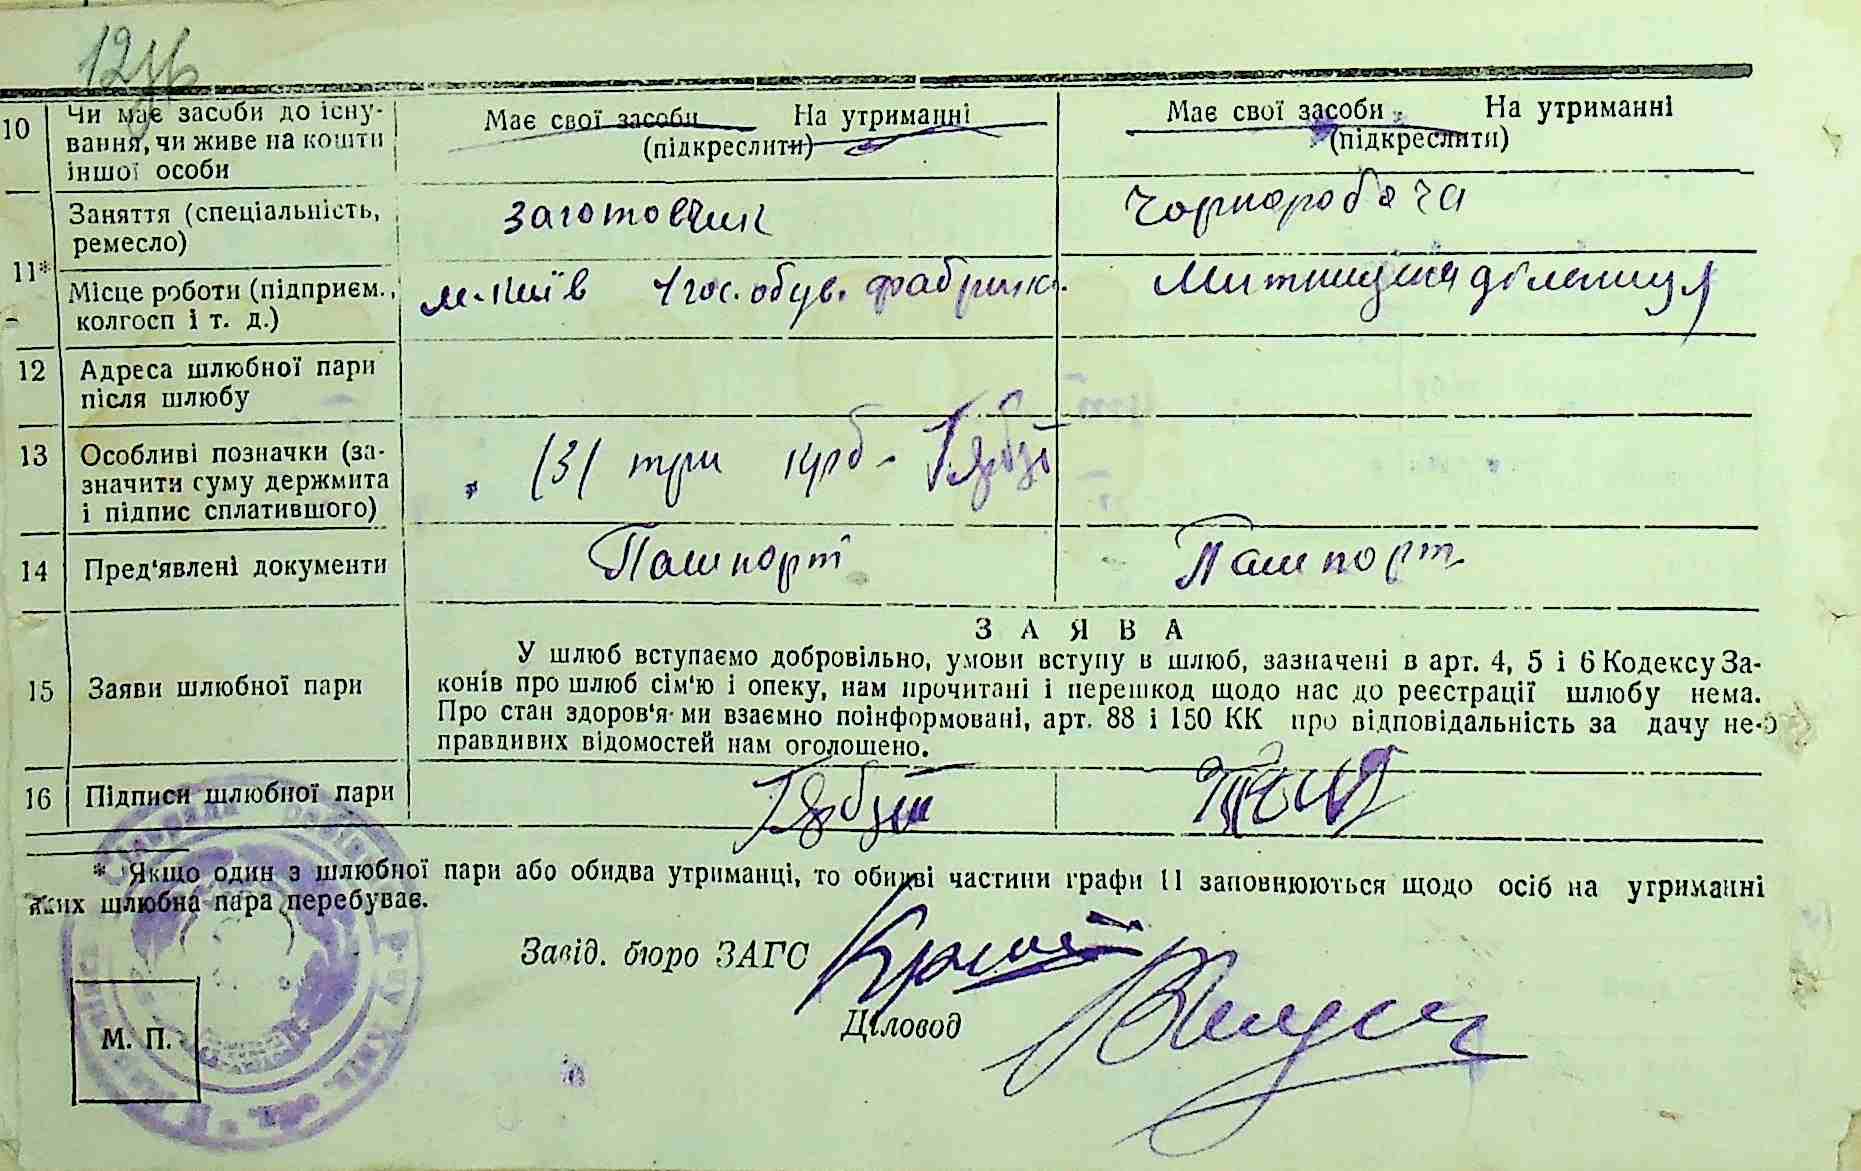 10 Чи має засоби до існу-
вання, чи живе на кошти
іншої особи
Має свої засоби На утриманні
(підкреслити)
Має свої засоби На утриманні
(підкреслити)
11* Заняття (спеціальність,
ремесло)
заготовчик
Чорноробоча
Місце роботи (підприєм.,
колгосп і т. д.)
м. Київ 1 гос. обув. фабрик.
дільниця
12 Адреса шлюбної пари
після шлюбу
13 Особливі позначки (за-
значити суму держмита
і підпис сплатившого)
(3) три крб-
14 Пред'явлені документи
Пашпорт
Пашпорт
15 Заяви шлюбної пари
ЗАЯВА
У шлюб вступаємо добровільно, умови вступу в шлюб, зазначені в арт. 4, 5 і 6 Кодексу За-
конів про шлюб сім'ю і опеку, нам прочитані і перешкод щодо нас до реєстрації шлюбу нема.
Про стан здоров'я ми взаємно поінформовані, арт. 88 і 150 КК про відповідальність за дачу не-
правдивих відомостей нам оголошено.
16 Підписи шлюбної пари
* Якщо один з шлюбної пари або обидва утриманці, то обидві частини графи 11 заповнюються щодо осіб на утриманні
яких шлюбна пара перебуває.
Завід. бюро ЗАГС
Діловод
М. П.